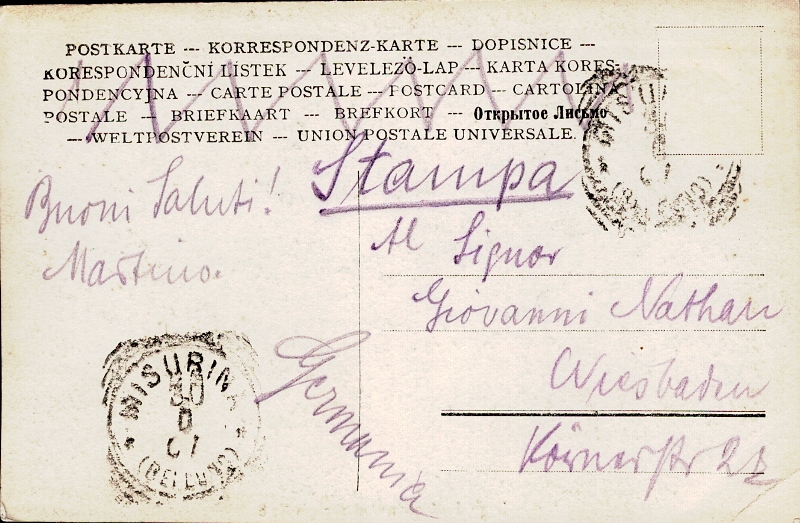 POSTKARTE --- KORRESPONDENZ-KARTE --- DOPISNICE ---
KORESPONDENČNÍ LÍSTEK --- LEVELEZÖ-LAP --- KARTA KORES-
PONDENCYJNA --- CARTE POSTALE --- POSTCARD --- CARTOLINA
POSTALE --- BRIEFKAART --- BREFKORT --- Открытое Письмо
--- WELTPOSTVEREIN --- UNION POSTALE UNIVERSALE.
Stampa
Buoni Saluti!
Martino.
Al Signor
Giovanni Nathan
Wiesbaden
Körnerstr
Germania
MISURINA
(BELLUNO)
MISU